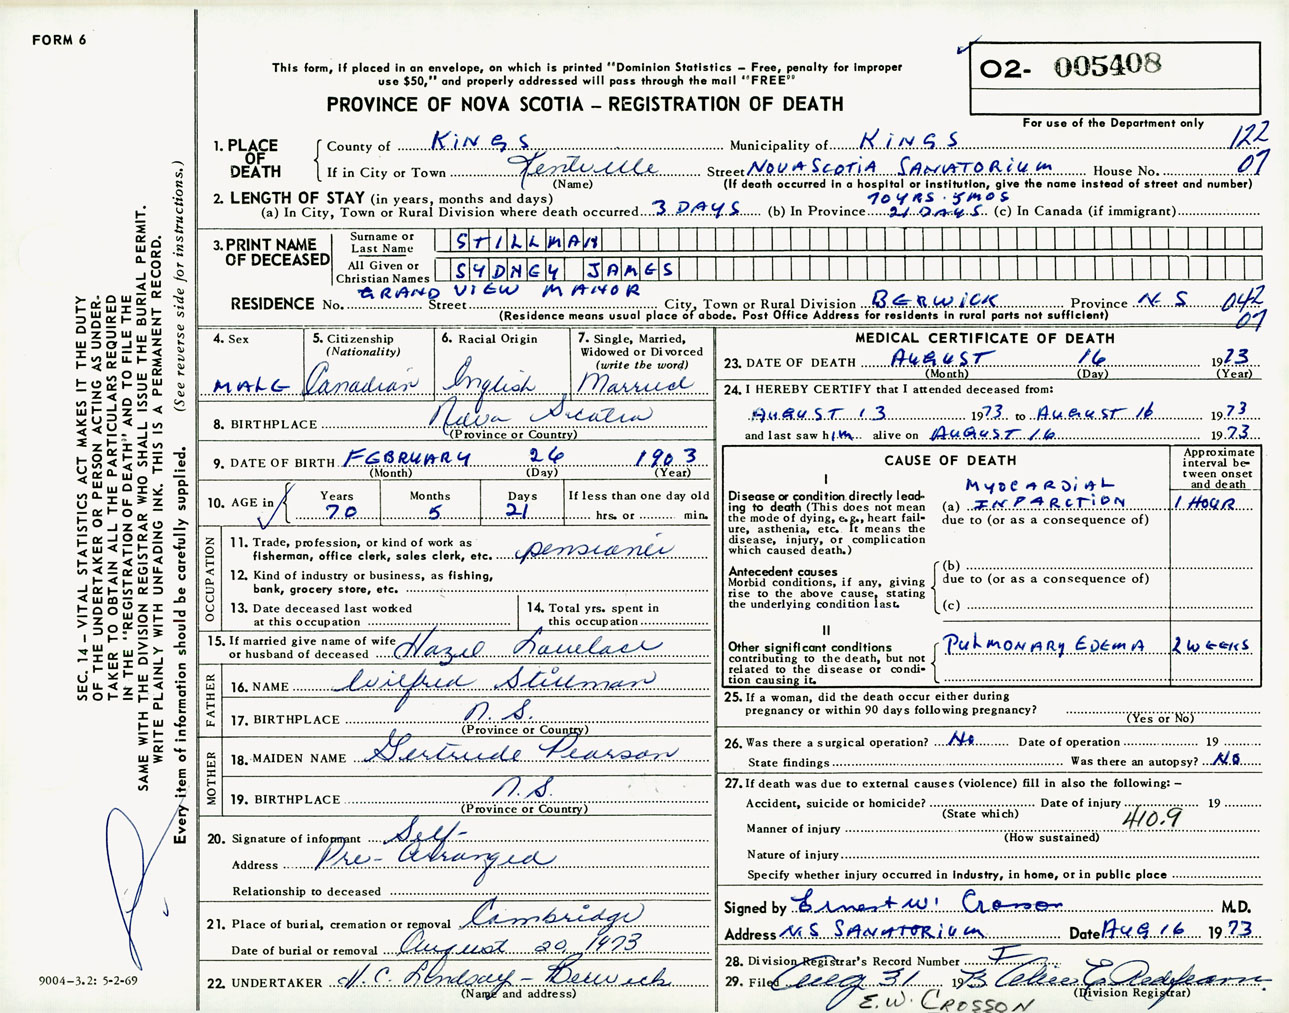 FORM 6
This form, if placed in an envelope, on which is printed "Dominion Statistics – Free, penalty for improper
use $50," and properly addressed will pass through the mail "FREE"
PROVINCE OF NOVA SCOTIA – REGISTRATION OF DEATH
O2- 005408
For use of the Department only
1. PLACE OF DEATH County of KINGS Municipality of KINGS 122
If in City or Town Kentville Street NOVA SCOTIA SANATORIUM House No. 07
(Name) (If death occurred in a hospital or institution, give the name instead of street and number)
2. LENGTH OF STAY (in years, months and days) 70 YRS. 5 MOS
(a) In City, Town or Rural Division where death occurred 3 DAYS (b) In Province 21 DAYS (c) In Canada (if immigrant)
3. PRINT NAME OF DECEASED
Surname or Last Name STILLMAN
All Given or Christian Names SYDNEY JAMES
GRAND VIEW MANOR
RESIDENCE No. Street City, Town or Rural Division BERWICK Province N S 042
(Residence means usual place of abode. Post Office Address for residents in rural parts not sufficient) 07
4. Sex MALE
5. Citizenship (Nationality) Canadian
6. Racial Origin English
7. Single, Married, Widowed or Divorced (write the word) Married
8. BIRTHPLACE Nova Scotia
(Province or Country)
9. DATE OF BIRTH FEBRUARY 26 1903
(Month) (Day) (Year)
10. AGE in Years 70 Months 5 Days 21 If less than one day old hrs. or min.
OCCUPATION
11. Trade, profession, or kind of work as
fisherman, office clerk, sales clerk, etc. pensioner
12. Kind of industry or business, as fishing,
bank, grocery store, etc.
13. Date deceased last worked
at this occupation
14. Total yrs. spent in
this occupation
15. If married give name of wife
or husband of deceased Hazel Lovelace
FATHER
16. NAME Wilfred Stillman
17. BIRTHPLACE N.S.
(Province or Country)
MOTHER
18. MAIDEN NAME Gertrude Pearson
19. BIRTHPLACE N.S.
(Province or Country)
20. Signature of informant Self-
Address Pre-Arranged
Relationship to deceased
21. Place of burial, cremation or removal Cambridge
Date of burial or removal August 20, 1973
22. UNDERTAKER H.C. Lindsay – Berwick
(Name and address)
MEDICAL CERTIFICATE OF DEATH
23. DATE OF DEATH AUGUST 16 1973
(Month) (Day) (Year)
24. I HEREBY CERTIFY that I attended deceased from:
AUGUST 13 1973 to AUGUST 16 1973
and last saw him alive on AUGUST 16 1973
CAUSE OF DEATH
Approximate interval between onset and death
I
Disease or condition directly leading to death (This does not mean the mode of dying, e.g., heart failure, asthenia, etc. It means the disease, injury, or complication which caused death.)
(a) MYOCARDIAL INFARCTION 1 HOUR
due to (or as a consequence of)
Antecedent causes
Morbid conditions, if any, giving rise to the above cause, stating the underlying condition last.
(b)
due to (or as a consequence of)
(c)
II
Other significant conditions
contributing to the death, but not related to the disease or condition causing it.
PULMONARY EDEMA 2 WEEKS
25. If a woman, did the death occur either during
pregnancy or within 90 days following pregnancy?
(Yes or No)
26. Was there a surgical operation? No Date of operation 19
State findings Was there an autopsy? No
27. If death was due to external causes (violence) fill in also the following: –
Accident, suicide or homicide? Date of injury 19
(State which)
Manner of injury 410.9
(How sustained)
Nature of injury
Specify whether injury occurred in industry, in home, or in public place
Signed by Ernest W. Crosson M.D.
Address N S SANATORIUM Date AUG 16 1973
28. Division Registrar's Record Number
29. Filed Aug 31 19
(Division Registrar)
E.W. CROSSON
SEC. 14 – VITAL STATISTICS ACT MAKES IT THE DUTY
OF THE UNDERTAKER OR PERSON ACTING AS UNDER-
TAKER TO OBTAIN ALL THE PARTICULARS REQUIRED
IN THE "REGISTRATION OF DEATH" AND TO FILE THE
SAME WITH THE DIVISION REGISTRAR WHO SHALL ISSUE THE BURIAL PERMIT.
WRITE PLAINLY WITH UNFADING INK. THIS IS A PERMANENT RECORD.
Every item of information should be carefully supplied. (See reverse side for instructions.)
9004–3.2: 5-2-69